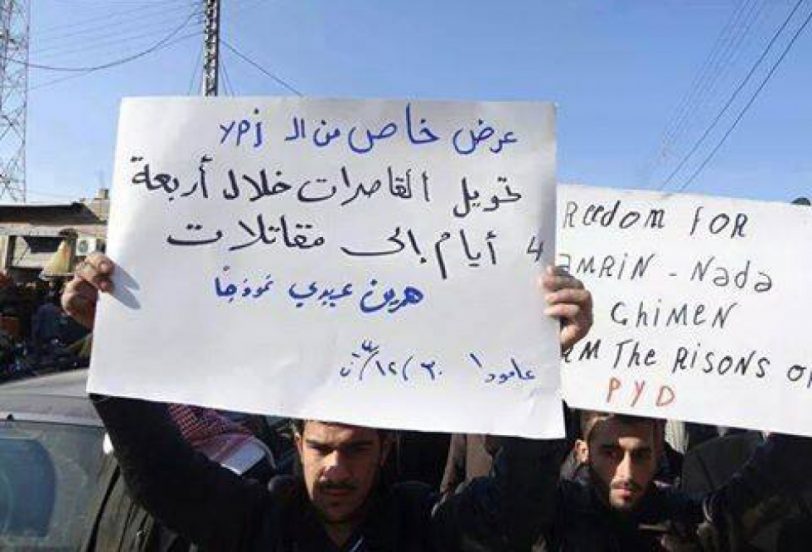 عرض خاص من الـ ypj
تحويل القاصرات خلال أربعة
4 أيام إلى مقاتلات
هرين عبدي نموذجاً
عامودا
Reedom FOR
AMRIN - Nada
GhiMEN
The RISONS
PYD